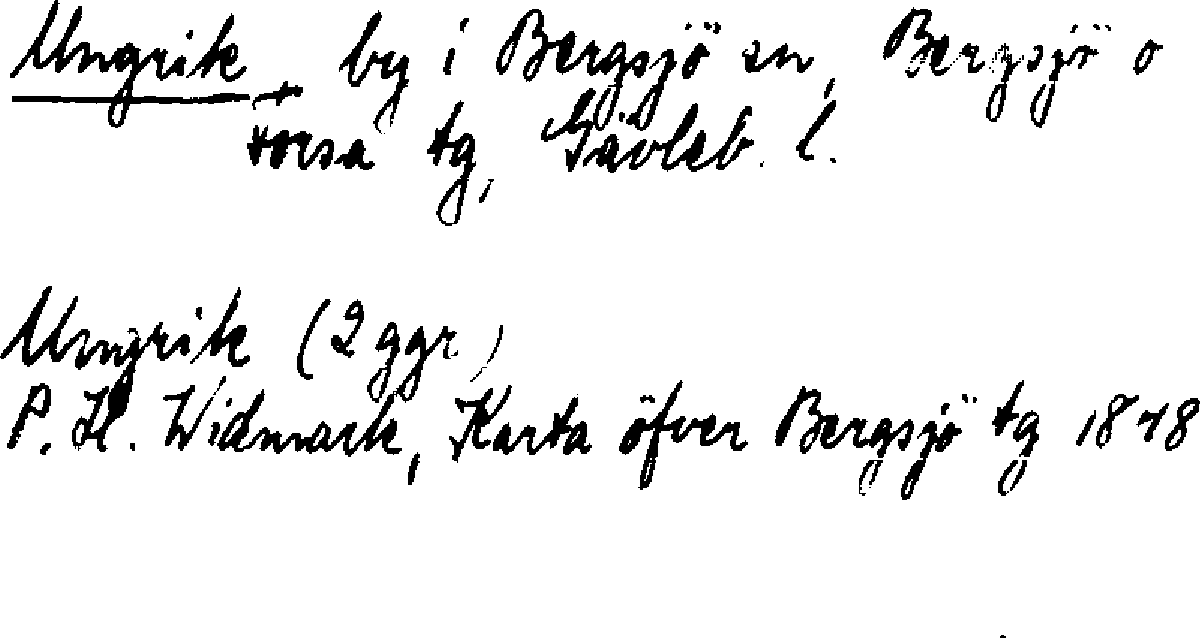 Ungrik, by i Bergsjö sn, Bergsjö o
Forsa tg, Gävleb. l.
Ungrik (2 ggr)
P. H. Widmark, Karta öfver Bergsjö tg 1848